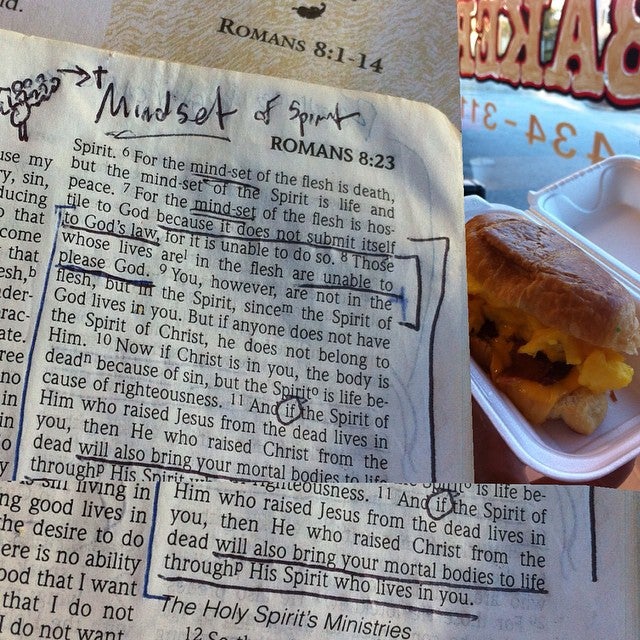 ROMANS 8:1-14
Mindset of Spirit
ROMANS 8:23
Spirit. 6 For the mind-set of the flesh is death,
but the mind-set of the Spirit is life and
peace. 7 For the mind-set of the flesh is hos-
tile to God because it does not submit itself
to God's law, for it is unable to do so. 8 Those
whose lives are in the flesh are unable to
please God. 9 You, however, are not in the
flesh, but in the Spirit, since m the Spirit of
God lives in you. But if anyone does not have
the Spirit of Christ, he does not belong to
Him. 10 Now if Christ is in you, the body is
dead n because of sin, but the Spirit o is life be-
cause of righteousness. 11 And if the Spirit of
Him who raised Jesus from the dead lives in
you, then He who raised Christ from the
dead will also bring your mortal bodies to life
through p His Spirit who
use my
ry, sin,
ducing
that
come
that
esh, b
nder-
rac-
ate.
ree
no
in
in
o
y
BAKE
434-311
living in
ng good lives in
he desire to do
ere is no ability
ood that I want
that I do not
I do not want
Spirit o is life be-
righteousness. 11 And if the Spirit of
Him who raised Jesus from the dead lives in
you, then He who raised Christ from the
dead will also bring your mortal bodies to life
through p His Spirit who lives in you.
The Holy Spirit's Ministries
12 So th